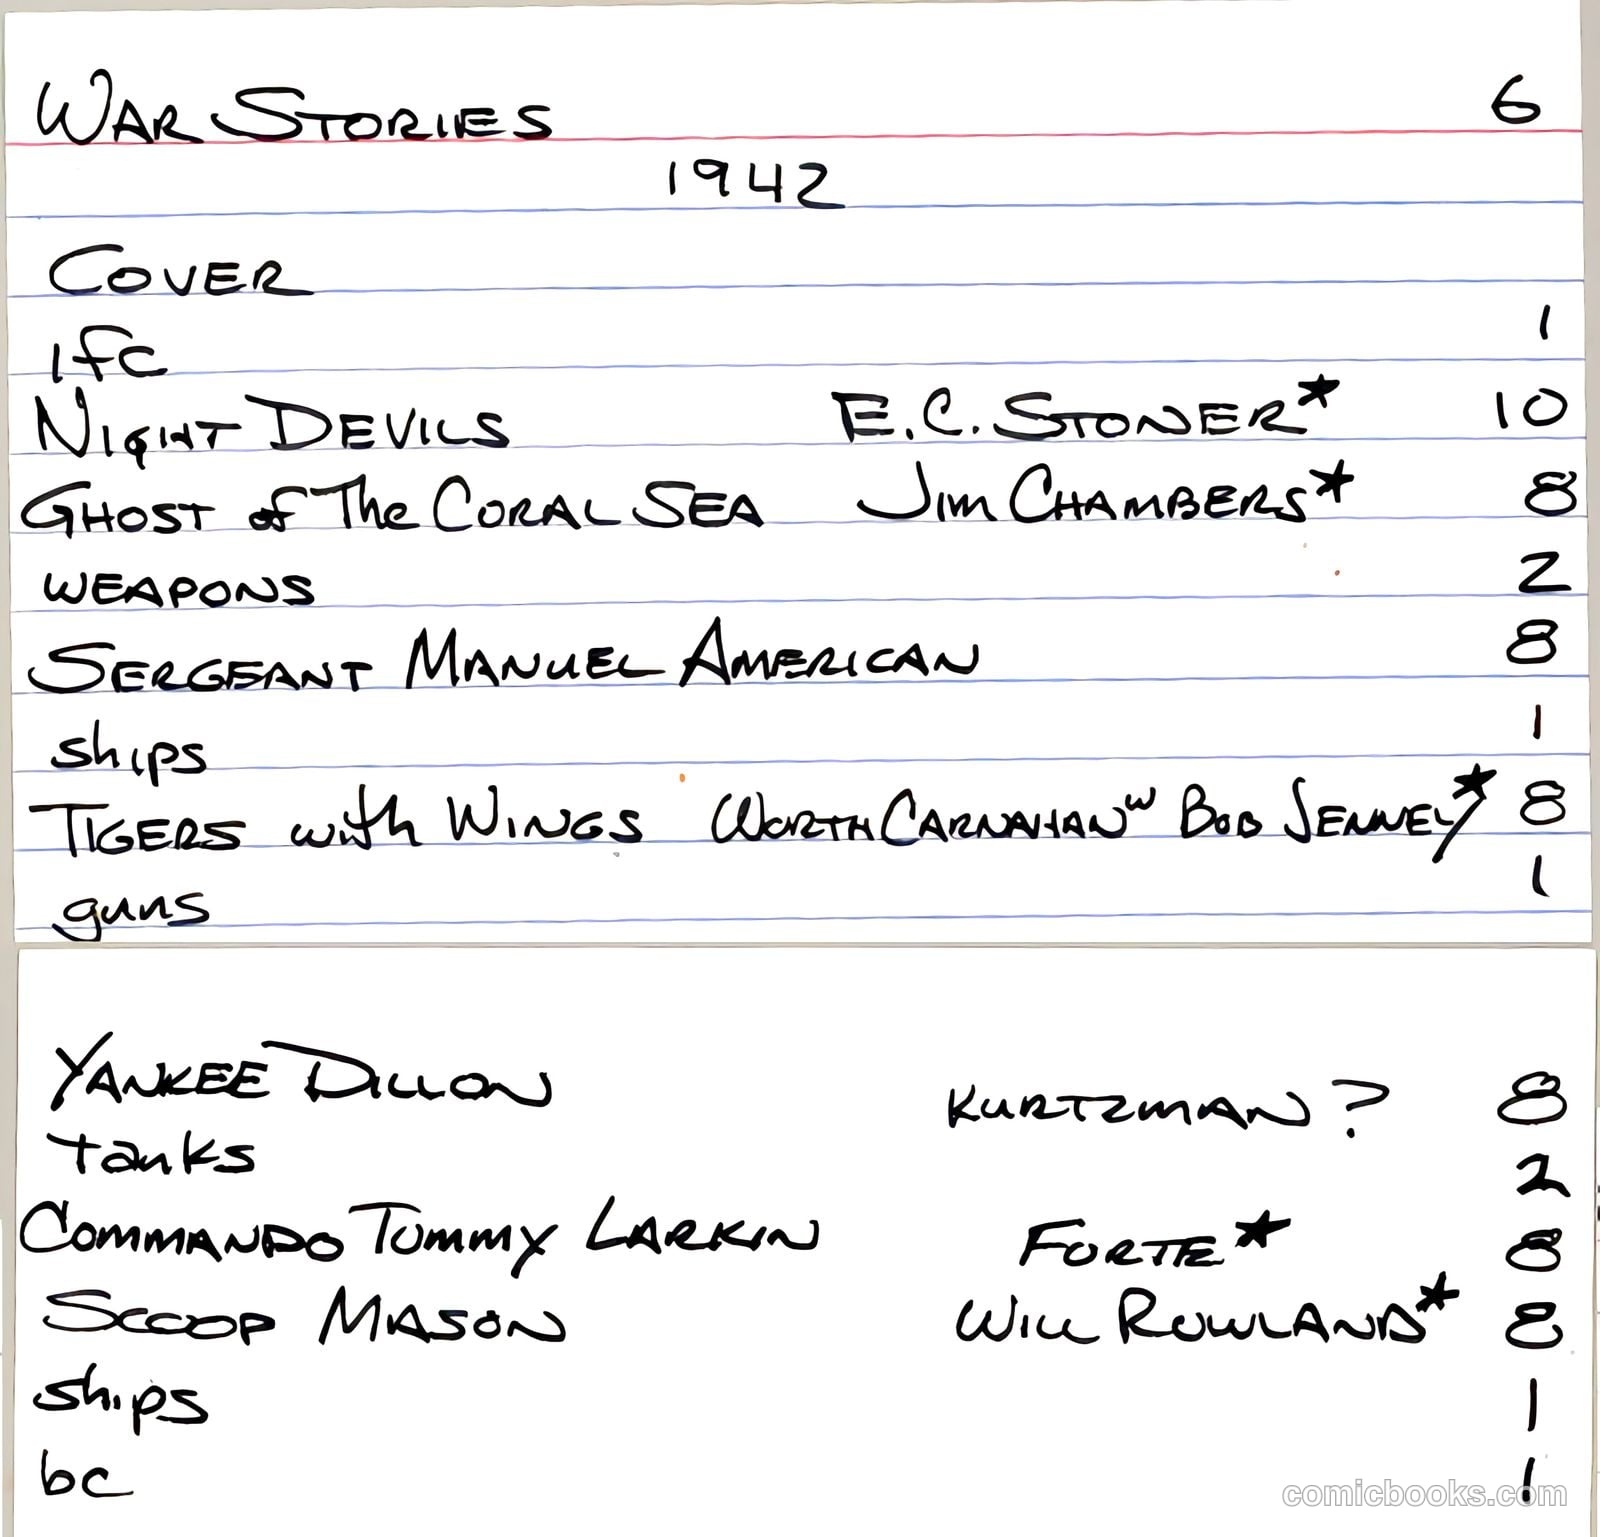 WAR STORIES 6
1942
COVER
ifc 1
NIGHT DEVILS E.C. STONER★ 10
GHOST of The CORAL SEA JIM CHAMBERS★ 8
WEAPONS 2
SERGEANT MANUEL AMERICAN 8
ships 1
TIGERS with WINGS WORTH CARNAHAN w BOB JENNEY★ 8
guns 1
YANKEE DILLON KURTZMAN? 8
tanks 2
COMMANDO TOMMY LARKIN FORTE★ 8
SCOOP MASON WILL ROWLAND★ 8
ships 1
bc 1
comicbooks.com